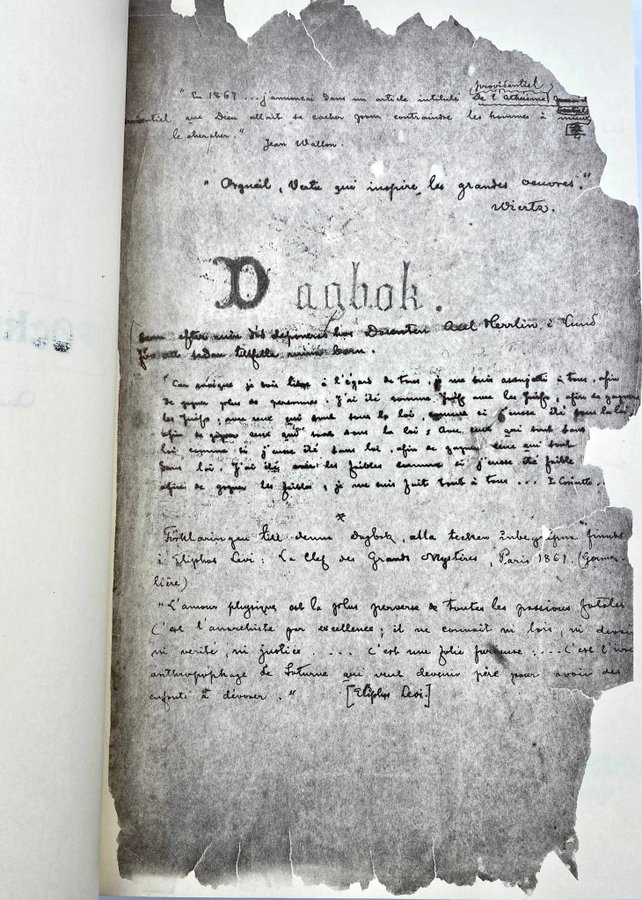 providentiel
"En 1867 ..j'annonçai dans un article intitulé De l'athéisme
que Dieu allait se cacher pour contraindre les hommes à mieux
le chercher."
Jean Wallon.
"Orgueil, Vertu qui inspire les grandes oeuvres."
Wiertz.
Dagbok.
som efter min död deponeras hos Docenten Axel Herrlin i Lund
för att sedan tillfalla mina barn.
"Car quoique je sois libre à l'égard de tous, je me suis assujetti à tous, afin
de gagner plus de personnes. J'ai été comme Juif avec les Juifs, afin de gagner
les Juifs; avec ceux qui sont sous la loi, comme si j'eusse été sous la loi
afin de gagner ceux qui sont sous la loi; avec ceux qui sont sans
loi comme si j'eusse été sans loi, afin de gagner ceux qui sont
sans loi. J'ai été avec les faibles comme si j'eusse été faible
afin de gagner les faibles; je me suis fait tout à tous ... I Corinth.
Förklaringen till denna Dagbok, alla tecken Inbegripna finnes
i Eliphas Levi: La Clef des Grands Mystères, Paris 1861. (Germer
lière)
"L'amour physique est la plus perverse de toutes les passions fatales
C'est l'anarchiste par excellence; il ne connait ni lois, ni devoir
ni verité, ni justice. ... C'est une folie furieuse; ... C'est l'
anthropophage de Saturne qui veut devenir père pour avoir des
enfants à dévorer."
[Eliphas Levi.]